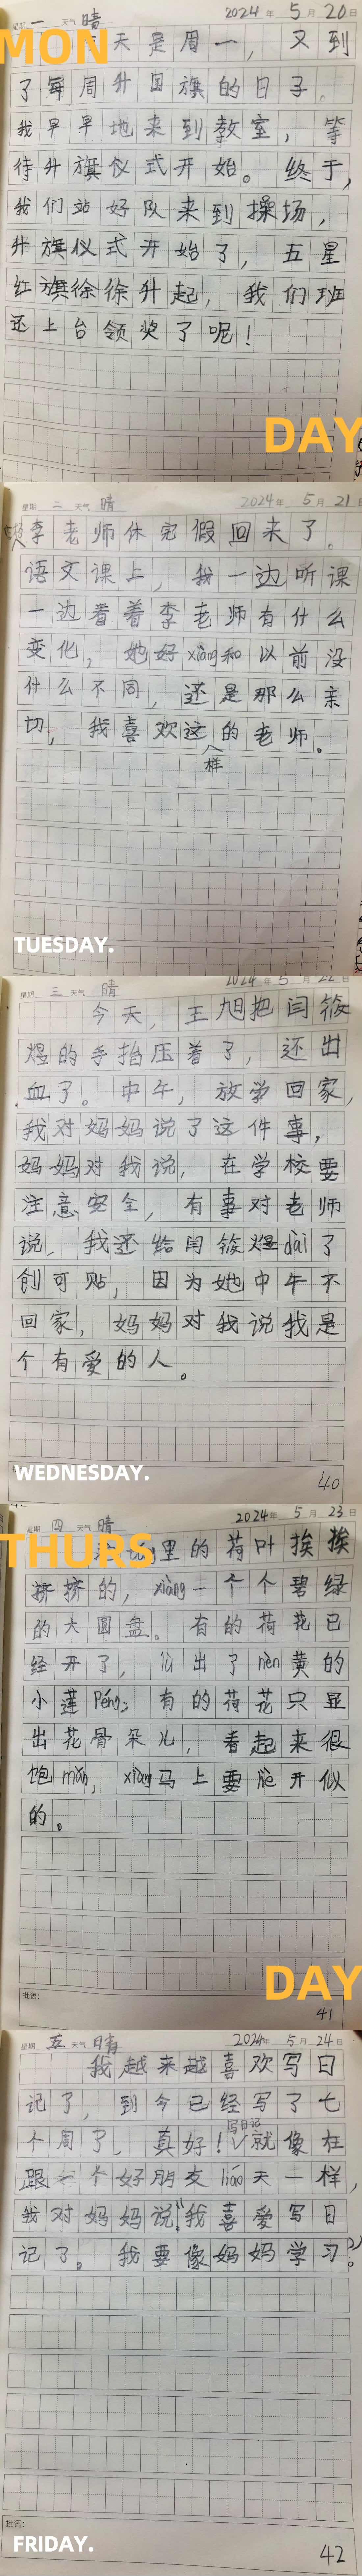 星期 一 天气 晴 2024年 5月 20日
MON
天是周一，又到
了每周升国旗的日子。
我早早地来到教室，等
待升旗仪式开始。终于，
我们站好队来到操场，
升旗仪式开始了，五星
红旗徐徐升起，我们班
还上台领奖了呢！
DAY
星期 二 天气 晴 2024年 5月 21日
李老师休完假回来了。
语文课上，我一边听课
一边看着李老师有什么
变化，她好xiàng和以前没
什么不同，还是那么亲
切，我喜欢这样的老师。
TUESDAY.
星期 三 天气 晴 2024年 5月 22日
今天，王旭把闫筱
煜的手指压着了，还出
血了。中午，放学回家，
我对妈妈说了这件事，
妈妈对我说，在学校要
注意安全，有事对老师
说，我还给闫筱煜dài了
创可贴，因为她中午不
回家，妈妈对我说我是
个有爱的人。
WEDNESDAY.
40
星期 四 天气 晴 2024年 5月 23日
THURS
里的荷叶挨挨
挤挤的，xiàng一个个碧绿
的大圆盘。有的荷花已
经开了，lù出了nèn黄的
小莲péng；有的荷花只显
出花骨朵儿，看起来很
饱mǎn，xiàng马上要 开似
的。
DAY
批语：
41
星期 五 天气 晴 2024年 5月 24日
我越来越喜欢写日
记了，到今已经写了七
个周了，真好！写日记就像在
跟一个好朋友liáo天一样，
我对妈妈说：“我喜爱写日
记了。我要像妈妈学习。”
批语：
FRIDAY.
42